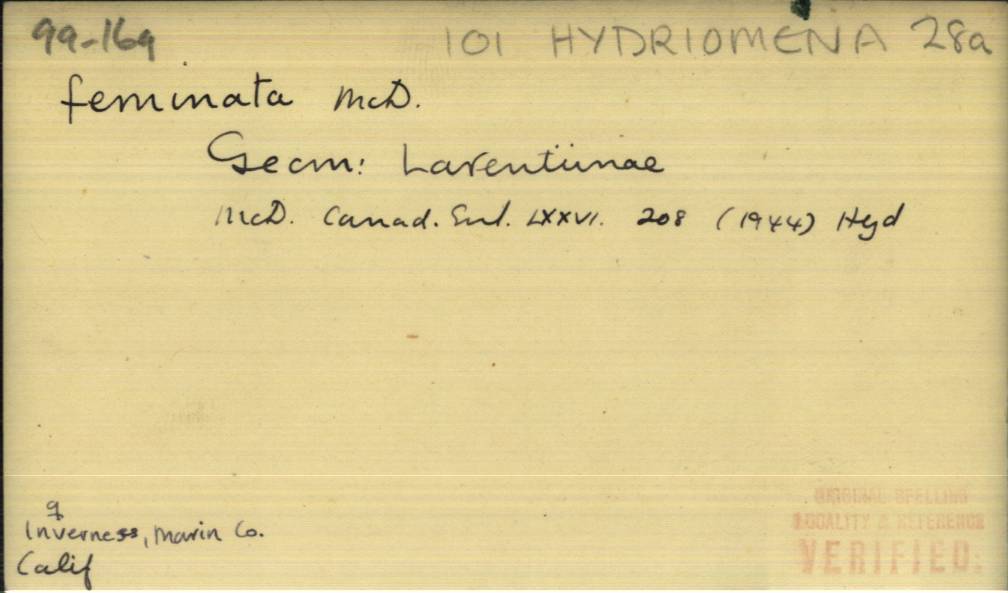 99-169 101 HYDRIOMENA 28a
feminata McD.
Geom: Larentiinae
McD. Canad. Ent. LXXVI. 208 (1944) Hyd
Inverness, Marin Co.
Calif
ORIGINAL SPELLING
LOCALITY & REFERENCE
VERIFIED.